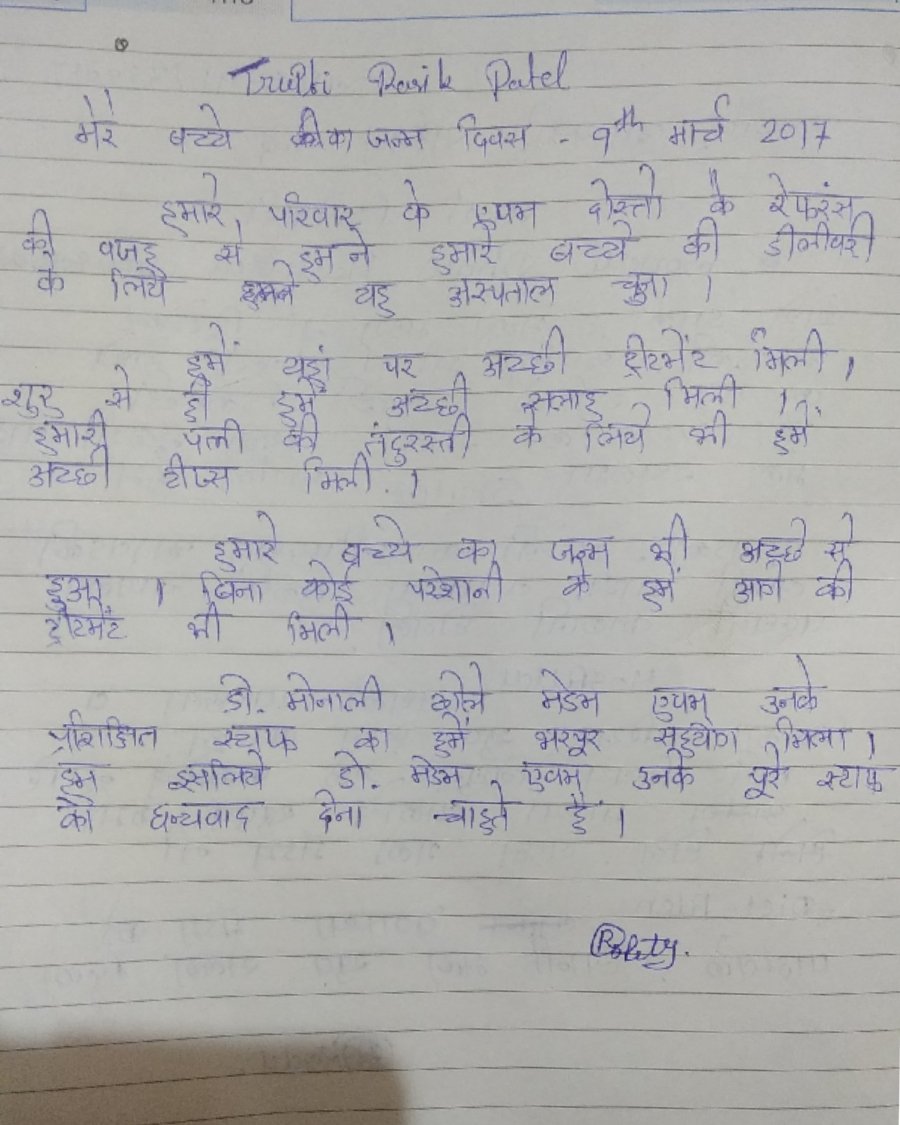 Trupti Rasik Patel
मेरे बच्चे का जन्म दिवस - 9th मार्च 2017
हमारे परिवार के एवम दोस्तो के रेफरंस
की वजह से हमने हमारे बच्चे की डीलीवरी
के लिये हमने यह अस्पताल चुना ।
हमें यहां पर अच्छी ट्रीटमेंट मिली ।
शुरु से ही हमें अच्छी सलाह मिली ।
हमारी पत्नी की तंदुरस्ती के लिये भी हमें
अच्छी टीप्स मिली ।
हमारे बच्चे का जन्म भी अच्छे से
हुआ । बिना कोई परेशानी के हमें आगे की
ट्रीटमेंट भी मिली ।
डो. मोनाली मेडम एवम उनके
प्रशिक्षित स्टाफ का हमें भरपूर सहयोग मिला ।
हम इसलिये डो. मेडम एवम उनके पूरे स्टाफ
को धन्यवाद देना चाहते हैं ।